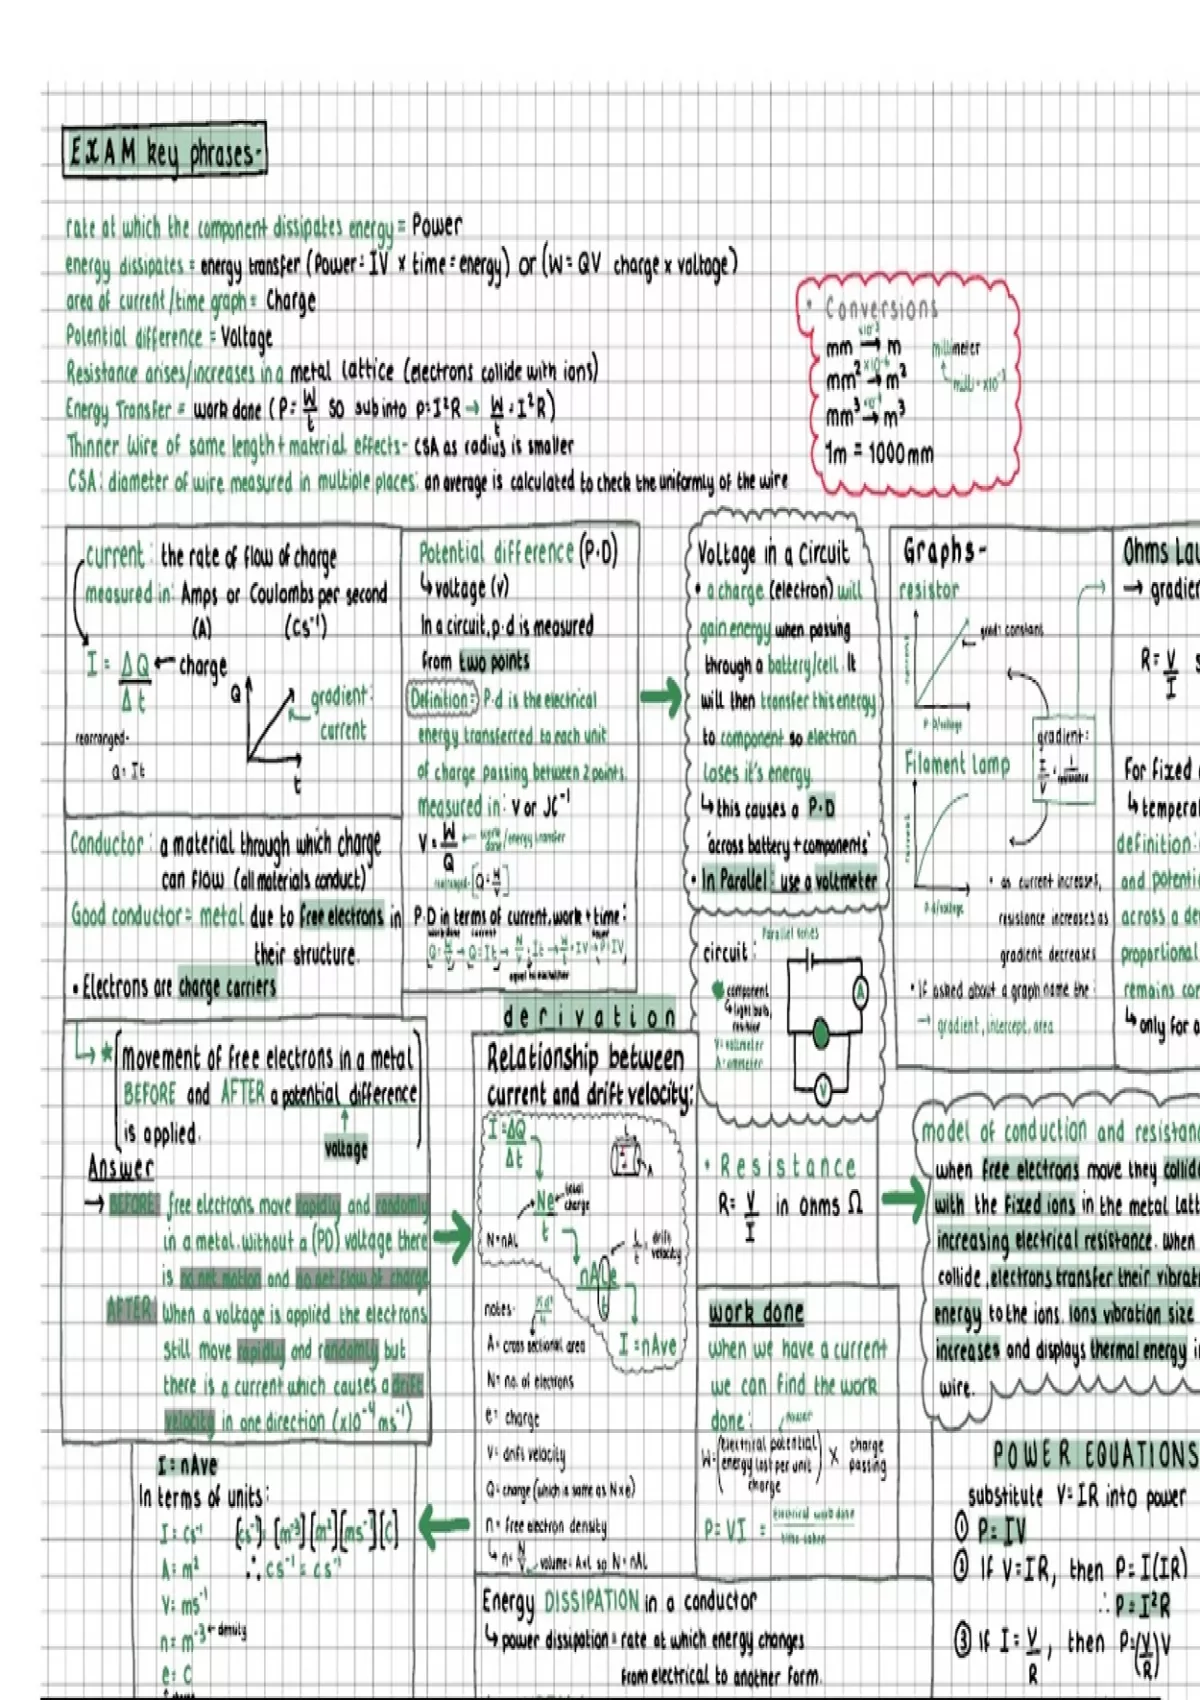 EXAM key phrases-
rate at which the component dissipates energy = Power
energy dissipates = energy transfer (Power = IV x time = energy) or (W = QV charge x voltage)
area of current/time graph = Charge
Potential difference = Voltage
Resistance arises/increases in a metal lattice (electrons collide with ions)
Energy Transfer = work done (P = W/t so sub into p = I²R → W/t = I²R)
Thinner wire of same length + material effects- CSA as radius is smaller
CSA: diameter of wire measured in multiple places: an average is calculated to check the uniformly of the wire
• Conversions
mm →x10⁻³ m
millimeter
mm² →x10⁻⁶ m²
milli = x10⁻³
mm³ → m³
1m = 1000mm
current: the rate of flow of charge
measured in: Amps or Coulombs per second
(A) (Cs⁻¹)
I = ΔQ/Δt ← charge
rearranged-
Q = It
Q
gradient:
current
t
Conductor: a material through which charge
can flow (all materials conduct)
Good conductor = metal due to free electrons in
their structure.
• Electrons are charge carriers
Potential difference (P.D)
↳ voltage (v)
In a circuit, p.d is measured
from two points
Definition: P.d is the electrical
energy transferred to each unit
of charge passing between 2 points.
measured in: V or JC⁻¹
V = W/Q ← work done/energy transfer
rearranged- [Q = W/V]
P.D in terms of current, work + time:
work done current power
Q = W/V → Q = It → W/V = It → W/t = IV → P = IV
equal to each other
Voltage in a Circuit
• a charge (electron) will
gain energy when passing
through a battery/cell. It
will then transfer this energy
to component so electron
loses it's energy.
↳ this causes a P.D
'across battery + components'
• In Parallel: use a voltmeter
Parallel series
circuit:
component
↳ light bulb,
resistor
V = voltmeter
A = ammeter
A
V
Graphs-
resistor
grad: constant
P.D/voltage
gradient:
I/V = 1/resistance
Filament Lamp
P.d/voltage
• as current increases,
resistance increases as
gradient decreases
• If asked about a graph name the:
→ gradient, intercept, area
Ohms Law
→ gradien
R = V/I s
For fixed
↳ tempera
definition:
and potenti
across a de
proportional
remains con
↳ only for o
↳ ★ Movement of free electrons in a metal
BEFORE and AFTER a potential difference
is applied.
voltage
Answer
→ BEFORE: free electrons move rapidly and randomly
in a metal. Without a (PD) voltage there
is no net motion and no net flow of charge
AFTER: When a voltage is applied the electrons
still move rapidly and randomly but
there is a current which causes a drift
velocity in one direction (x10⁻⁴ ms⁻¹)
derivation
Relationship between
current and drift velocity:
I = ΔQ/Δt
L
A
Ne/t ← total charge
N = nAL
L/t = drift velocity
nALe/t
I = nAve
notes-
A = cross sectional area
N = no. of electrons
e = charge
V = drift velocity
Q = charge (which is same as N x e)
n = free electron density
↳ n = N/V, volume = A x L so N = nAL
• Resistance
R = V/I in ohms Ω
model of conduction and resistanc
when free electrons move they collide
with the fixed ions in the metal latt
increasing electrical resistance. When
collide, electrons transfer their vibrat
energy to the ions. Ions vibration size
increases and displays thermal energy i
wire.
work done
when we have a current
we can find the work
done:
power
W = (electrical potential energy lost per unit charge) x charge passing
P = VI = electrical work done/time taken
I = nAve
In terms of units:
I = Cs⁻¹ [cs⁻¹] = [m⁻³][m²][ms⁻¹][C]
A = m² ∴ cs⁻¹ = cs⁻¹
V = ms⁻¹
n = m⁻³ ← density
e = C
Energy DISSIPATION in a conductor
↳ power dissipation = rate at which energy changes
from electrical to another form.
POWER EQUATIONS
substitute V = IR into power
① P = IV
② If V = IR, then P = I(IR)
∴ P = I²R
③ If I = V/R, then P = (V/R)V